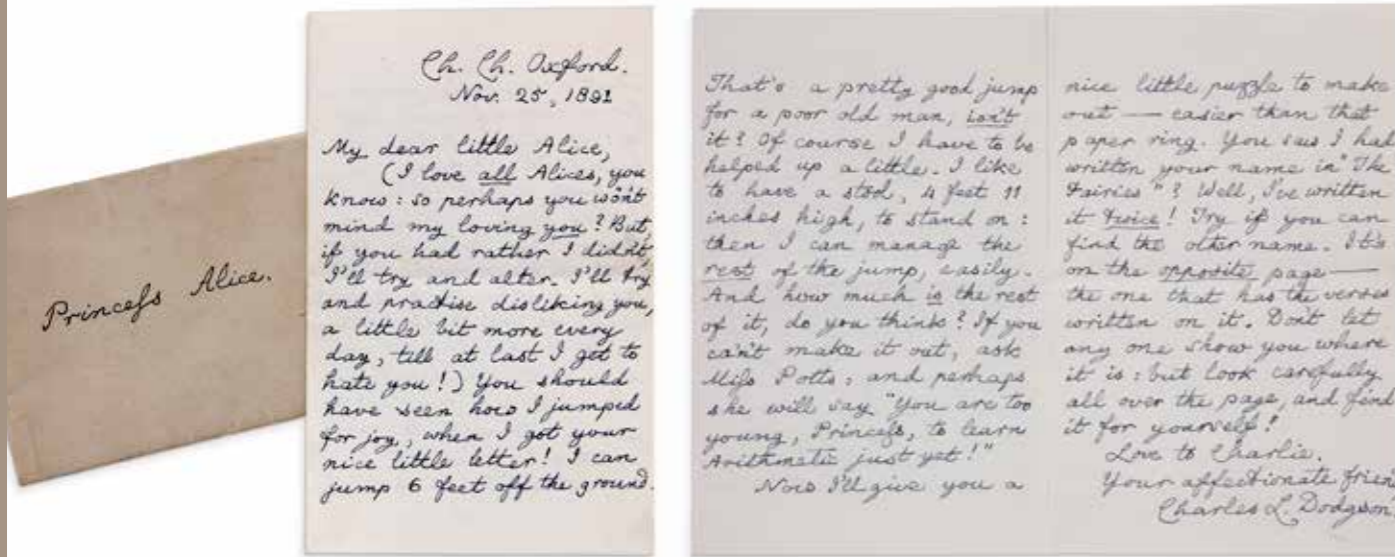 Princess Alice.
Ch. Ch. Oxford.
Nov. 25, 1891
My dear little Alice,
(I love all Alices, you
know: so perhaps you wo'n't
mind my loving you? But,
if you had rather I didn't,
I'll try and alter. I'll try
and practise disliking you,
a little bit more every
day, till at last I get to
hate you!) You should
have seen how I jumped
for joy, when I got your
nice little letter! I can
jump 6 feet off the ground.
That's a pretty good jump
for a poor old man, isn't
it? Of course I have to be
helped up a little. I like
to have a stool, 4 feet 11
inches high, to stand on:
then I can manage the
rest of the jump, easily.
And how much is the rest
of it, do you think? If you
ca'n't make it out, ask
Miss Potts: and perhaps
she will say "You are too
young, Princess, to learn
Arithmetic just yet!"
Now I'll give you a
nice little puzzle to make
out — easier than that
paper ring. You saw I had
written your name in "The
Fairies"? Well, I've written
it twice! Try if you can
find the other name. It's
on the opposite page —
the one that has the verses
written on it. Don't let
any one show you where
it is: but look carefully
all over the page, and find
it for yourself!
Love to Charlie.
Your affectionate frien
Charles L. Dodgson